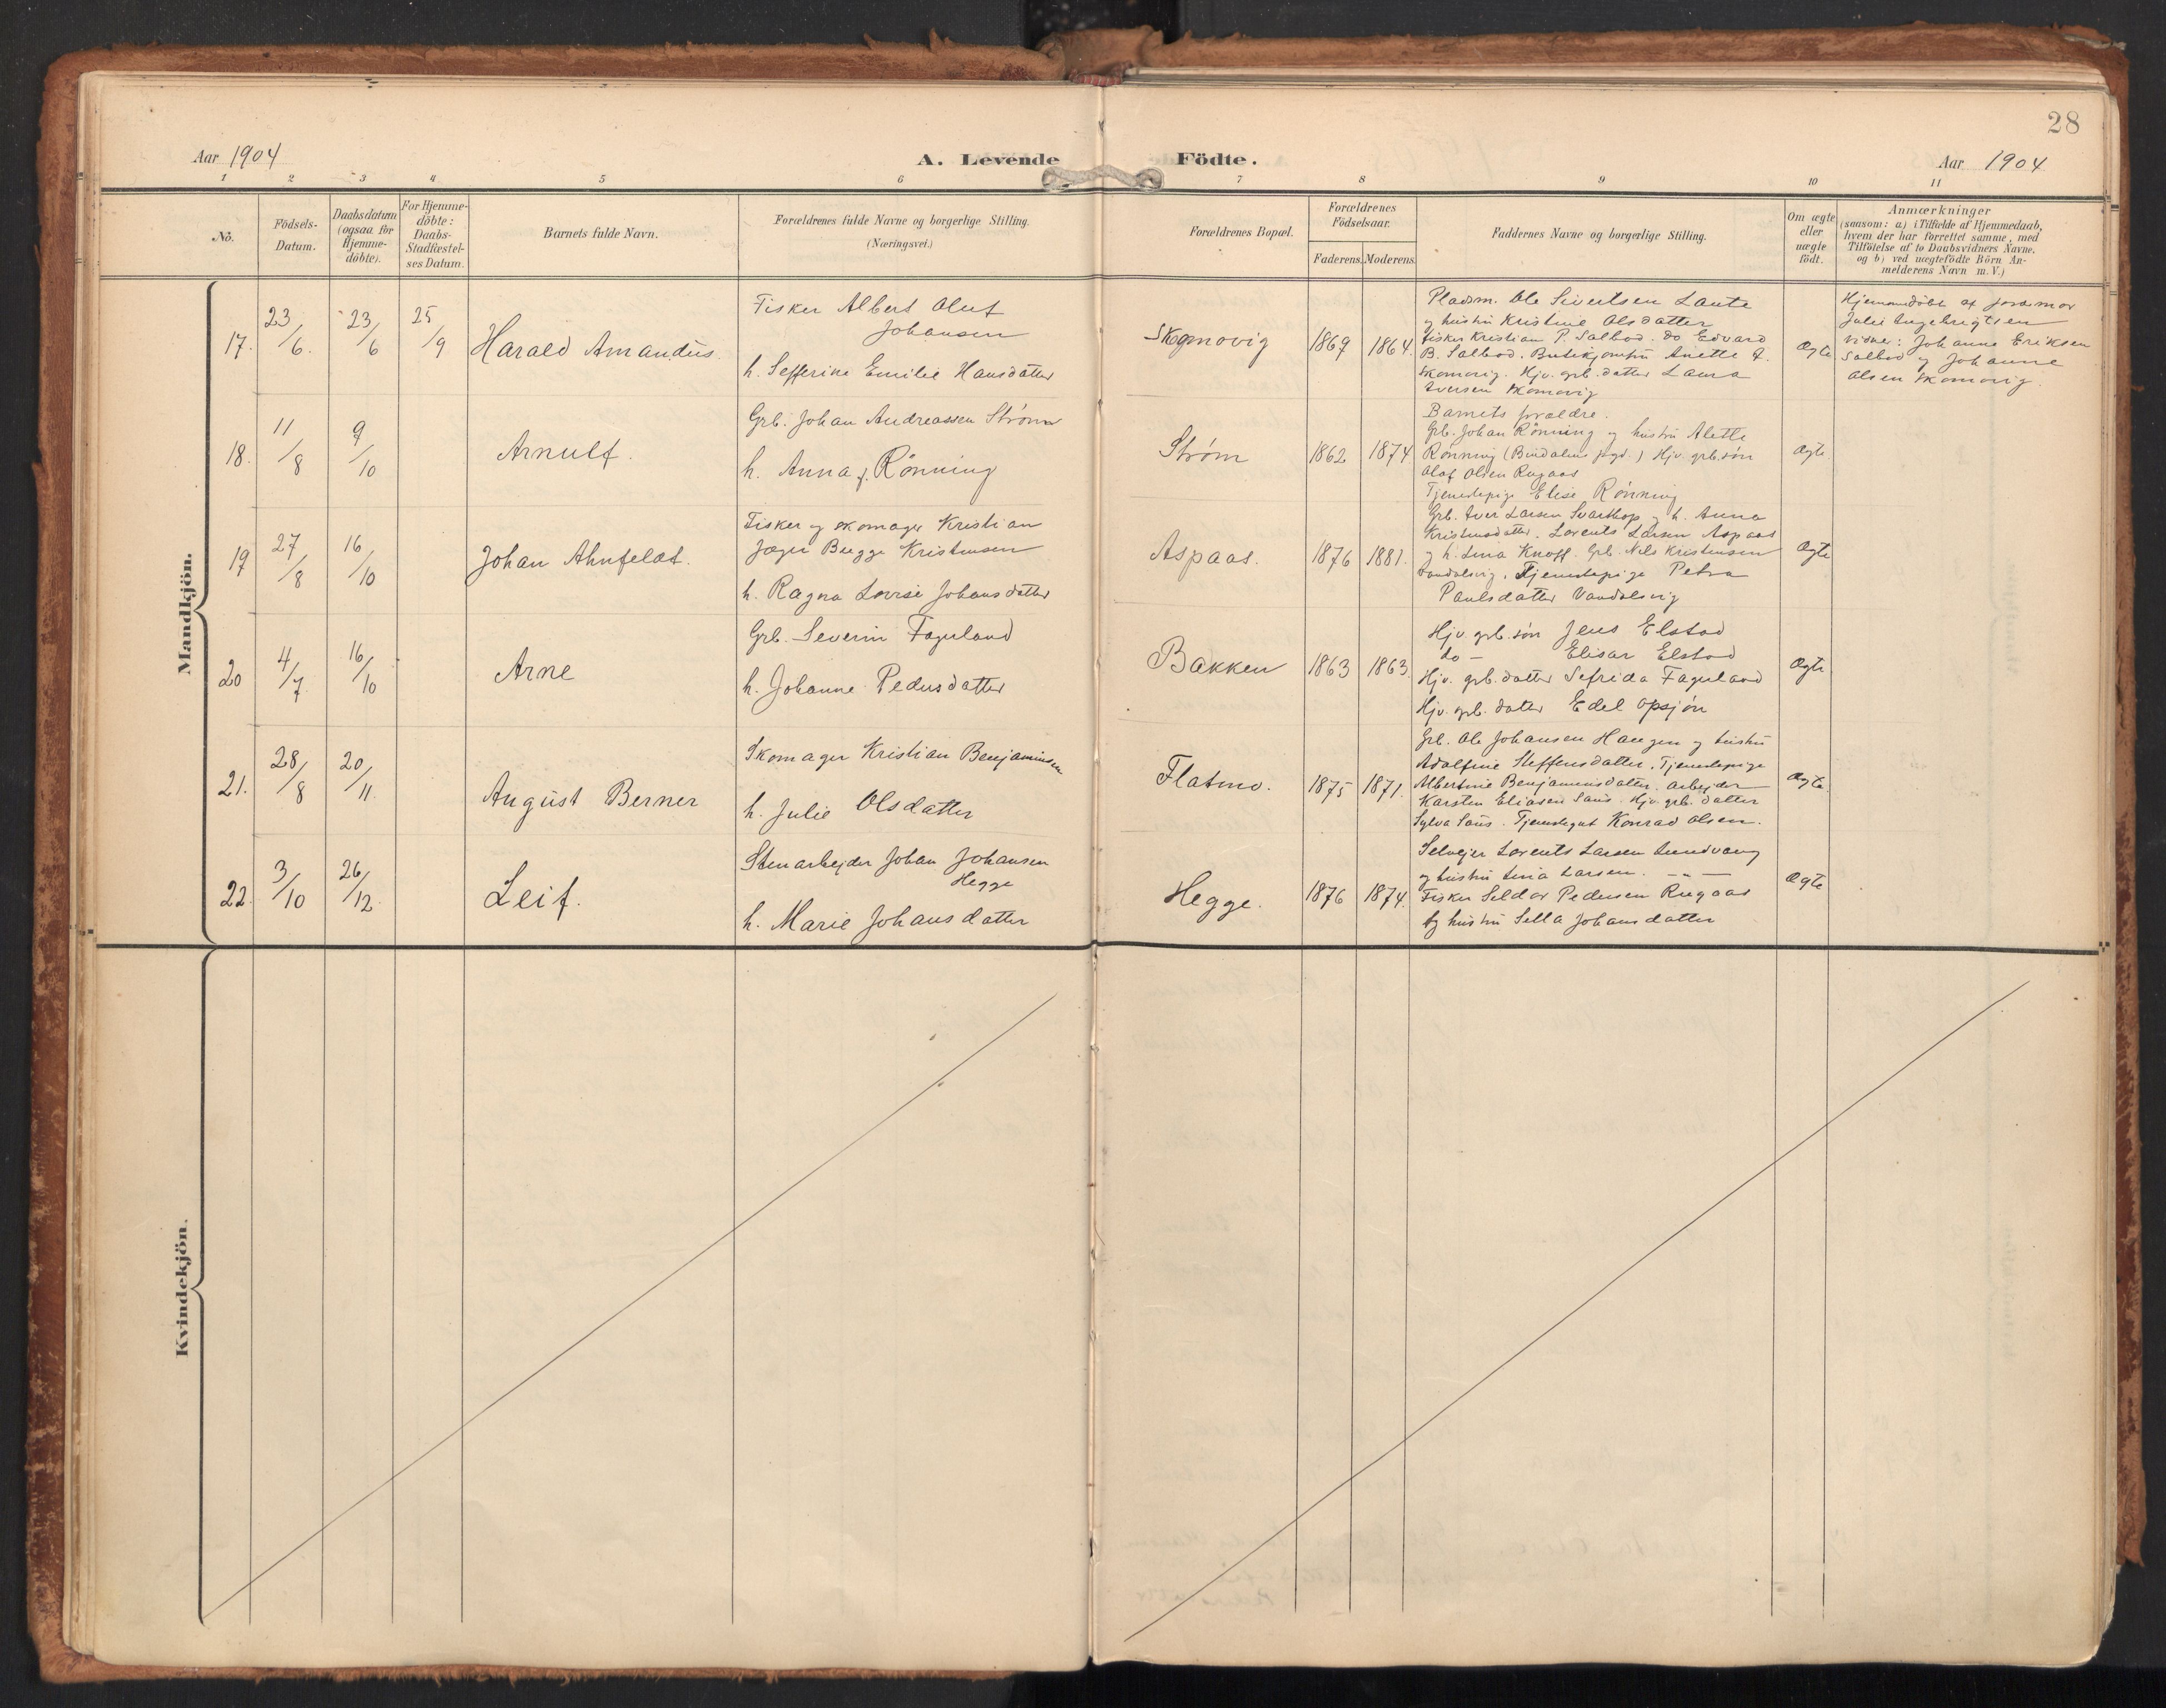 28
Aar 1904
A. Levende Födte.
Aar 1904
1 2 3 4 5 6 7 8 9 10 11
Nô.
Födsels-
Datum.
Daabsdatum
(ogsaa for
Hjemme-
döbte).
For Hjemme-
döbte:
Daabs-
Stadfæstel-
ses Datum.
Barnets fulde Navn.
Forældrenes fulde Navne og borgerlige Stilling.
(Næringsvei.)
Forældrenes Bopæl.
Forældrenes
Födselsaar.
Faderens. Moderens.
Faddernes Navne og borgerlige Stilling.
Om ægte
eller
uægte
födt.
Anmærkninger
(saasom: a) i Tilfælde af Hjemmedaab,
hvem der har forrettet samme, med
Tilföielse af to Daabsvidners Navne.
og b) ved uægtefödte Börn An-
melderens Navn m. V.)
Mandkjön.
17.
23/6.
23/6
25/9
Harald Amandus.
Fisker Albert Oluf
Johansen
h. Sefferine Emilie Hansdatter
Skomovig
1869
1864.
Pladsm. Ole Sivertsen Laute
og hustru Kristine Olsdatter
fisker Kristian P. Salbod. do Edvard
B. Salbod. Anette
Skomovig. Hjv. grb. datter Laura
Iversen Skomovig
Ægte
Hjemmedöbt af jordmor
Julie Ingebrigtsen
vidne: Johanne Eriksen
Salbod og Johanne
Olsen Skomovig.
18.
11/8
9/10
Arnulf.
Grb. Johan Andreassen Strøm
h. Anna f. Rönning
Strøm
1862
1874
Barnets forældre.
Grb. Johan Rönning og hustru Alette
Rönning (Bindalens pgd.) Hjv. grb. søn
Olaf Olsen Rugaas
Tjenestepige Elise Rönning
Ægte
19
27/8
16/10
Johan Ahnfeldt.
Fisker og skomager Kristian
Jæger Bugge Kristensen
h. Ragna Lovise Johansdatter
Aspaas.
1876
1881.
Grb. Iver Larsen Svarthop og h. Anna
Kristensdatter. Lorents Larsen Aspaas
og h. Lina Knoff. Grb. Nils Kristensen
Vandalsvig. Tjenestepige Petra
Paulsdatter Vandalsvig
Ægte
20
4/7
16/10
Arne
Grb. Severin Fagerland
h. Johanne Pedersdatter
Bakken
1863
1863.
Hjv. grb. søn Jens Elstad
do - Elisar Elstad
Hjv. grb. datter Sefrida Fagerland
Hjv. grb. datter Edel Opsjön
Ægte
21.
28/8
20/11.
August Berner
Skomager Kristian Benjaminsen
h. Julie Olsdatter
Flatmo.
1875
1871.
Grb. Ole Johansen Haugen og hustru
Adolfine Steffensdatter. Tjenestepige
Albertine Benjaminsdatter. Arbejder
Karsten Eliasen Saus. Hjv. grb. datter
Sylva Saus. Tjenestegut Konrad Olsen.
Ægte
22.
3/10
26/12
Leif.
Stenarbejder Johan Johansen
Hegge
h. Marie Johansdatter
Hegge.
1876
1874.
Selvejer Lorents Larsen Lundvang
og hustru Lina Larsen. -"-
Fisker Seldor Pedersen Rugaas
og hustru Sella Johansdatter
Ægte
Kvindekjön.